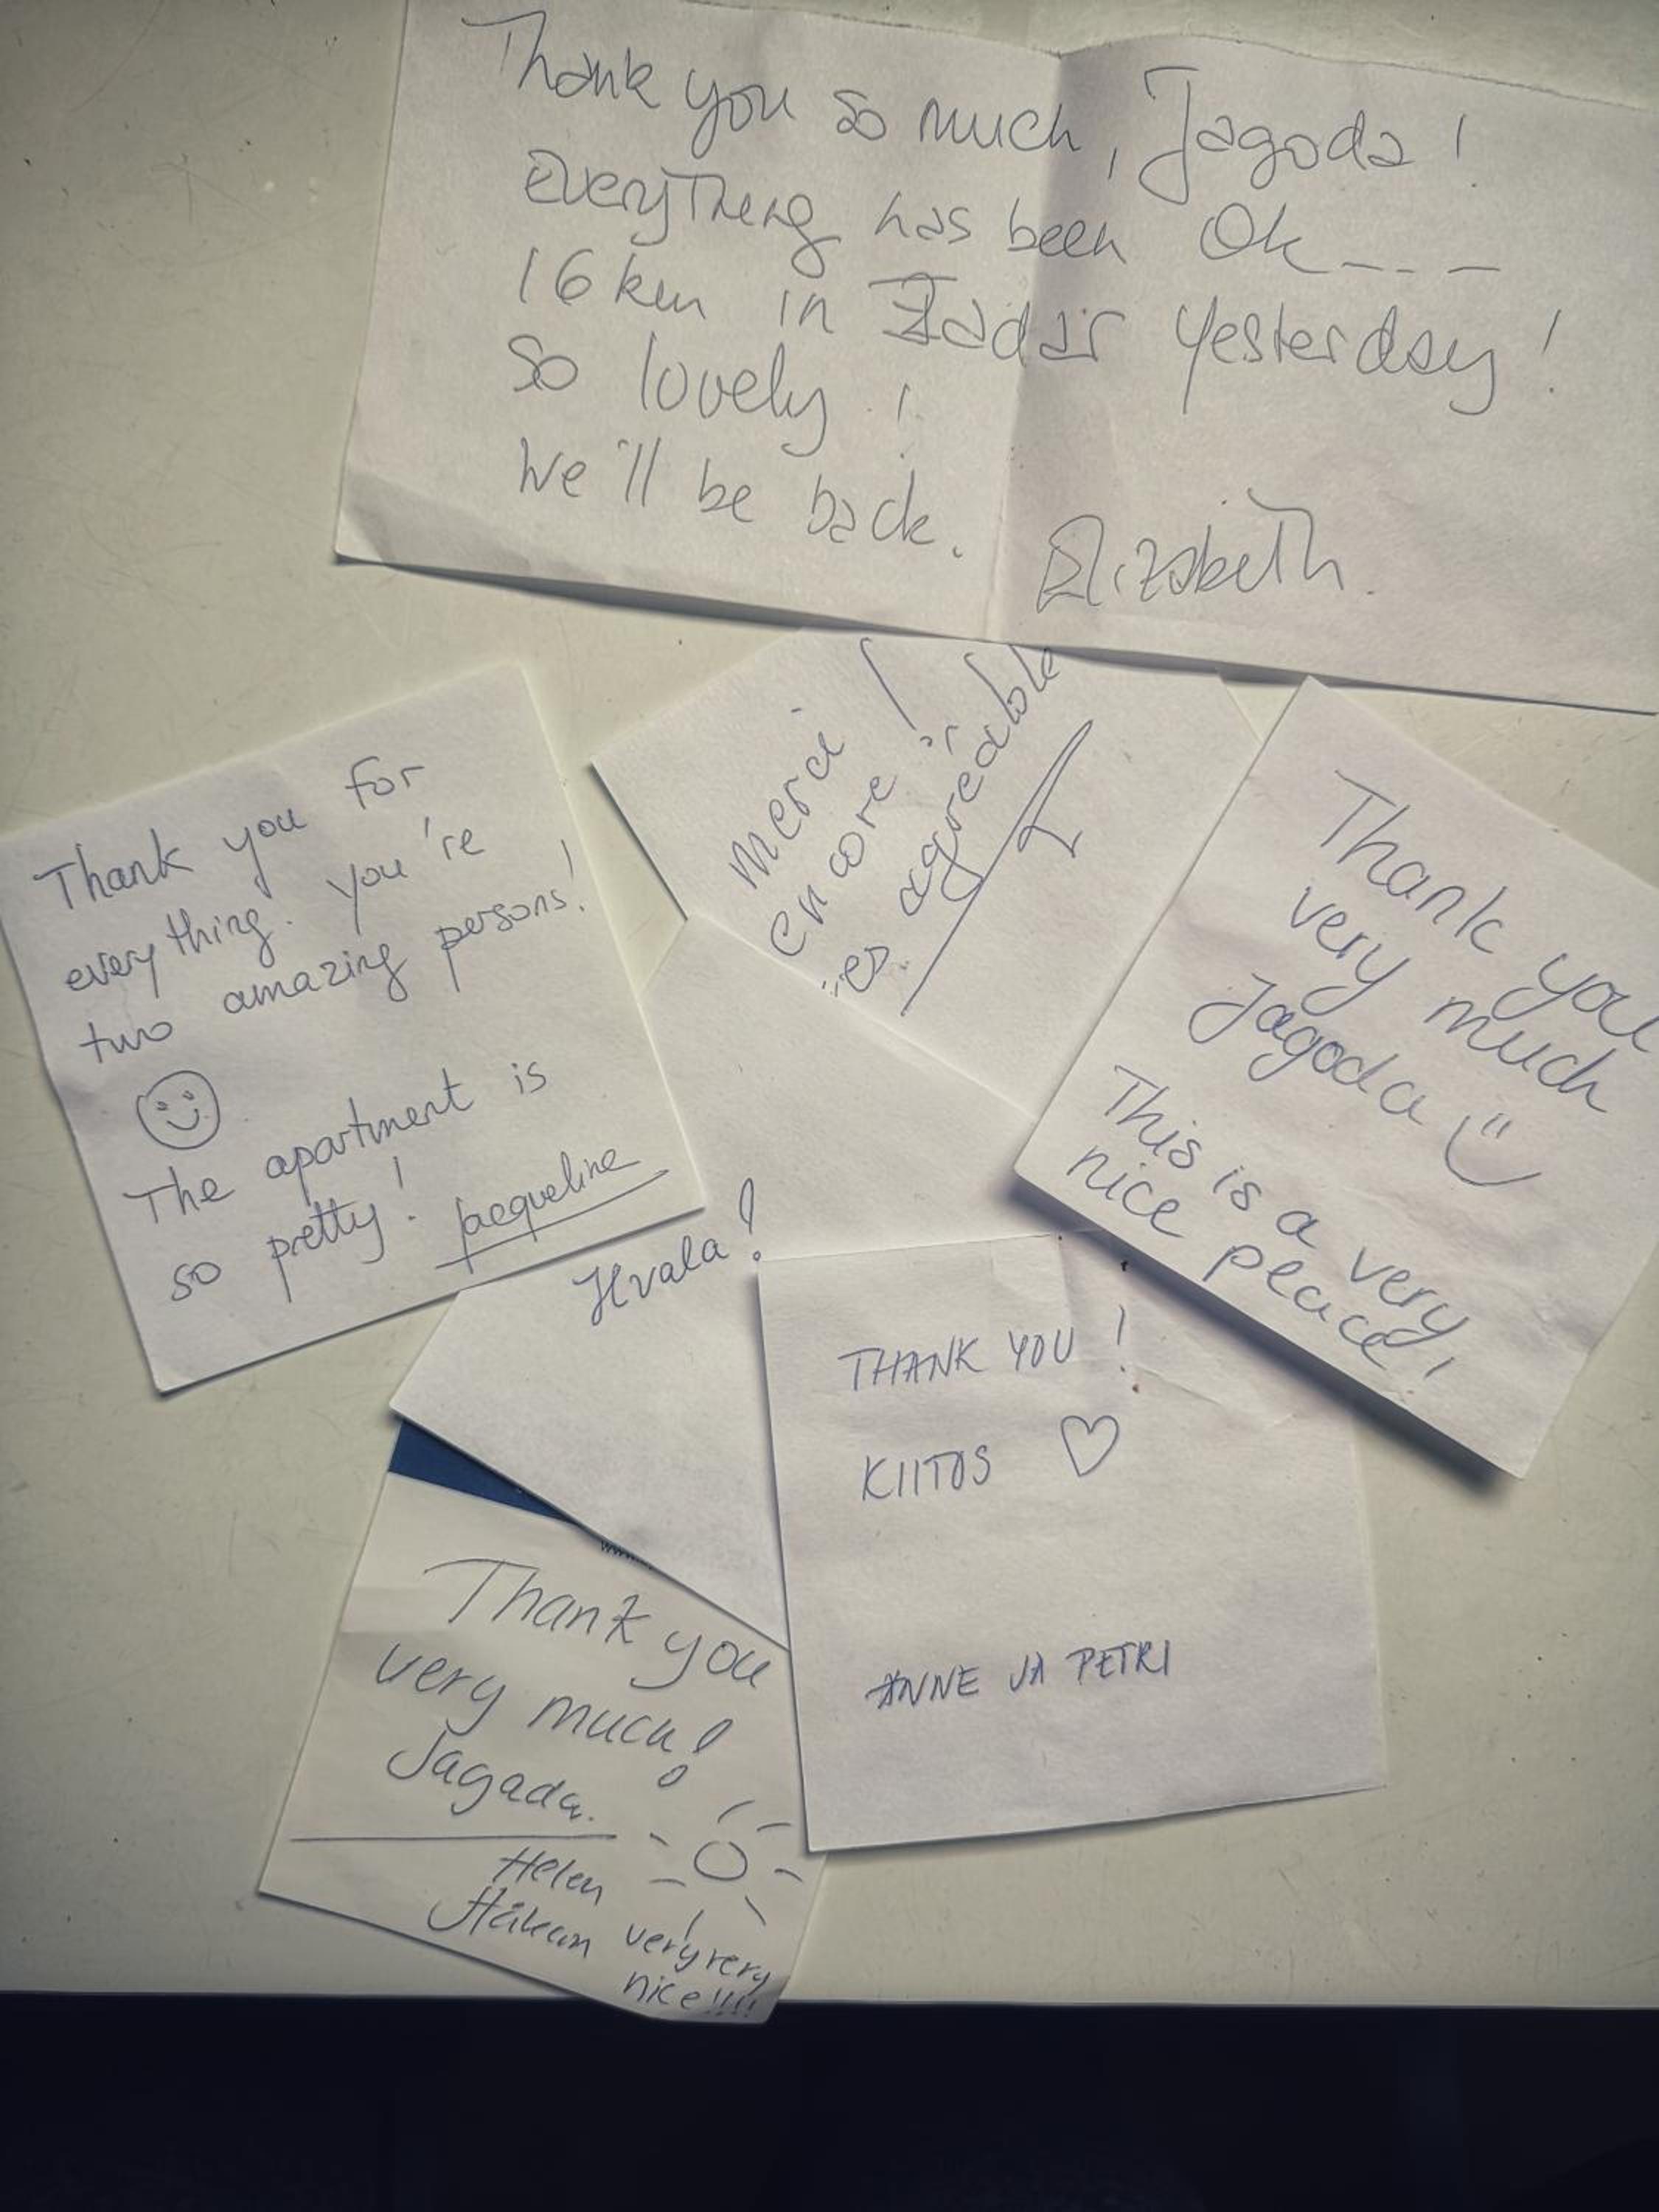 Thank you so much, Jagoda!
Everything has been Ok---
16 km in Zadar yesterday!
So lovely!
We'll be back.
Elizabeth.
Thank you for
everything. You're
two amazing persons!
The apartment is
so pretty!
Jacqueline
Merci !
encore
es agréable
Thank you
very much
Jagoda
This is a very
nice place!
Hvala!
THANK YOU !
KIITOS ♡
ANNE JA PETRI
Thank you
very much!
Jagada.
Helen
Håkan very very
nice!!!!